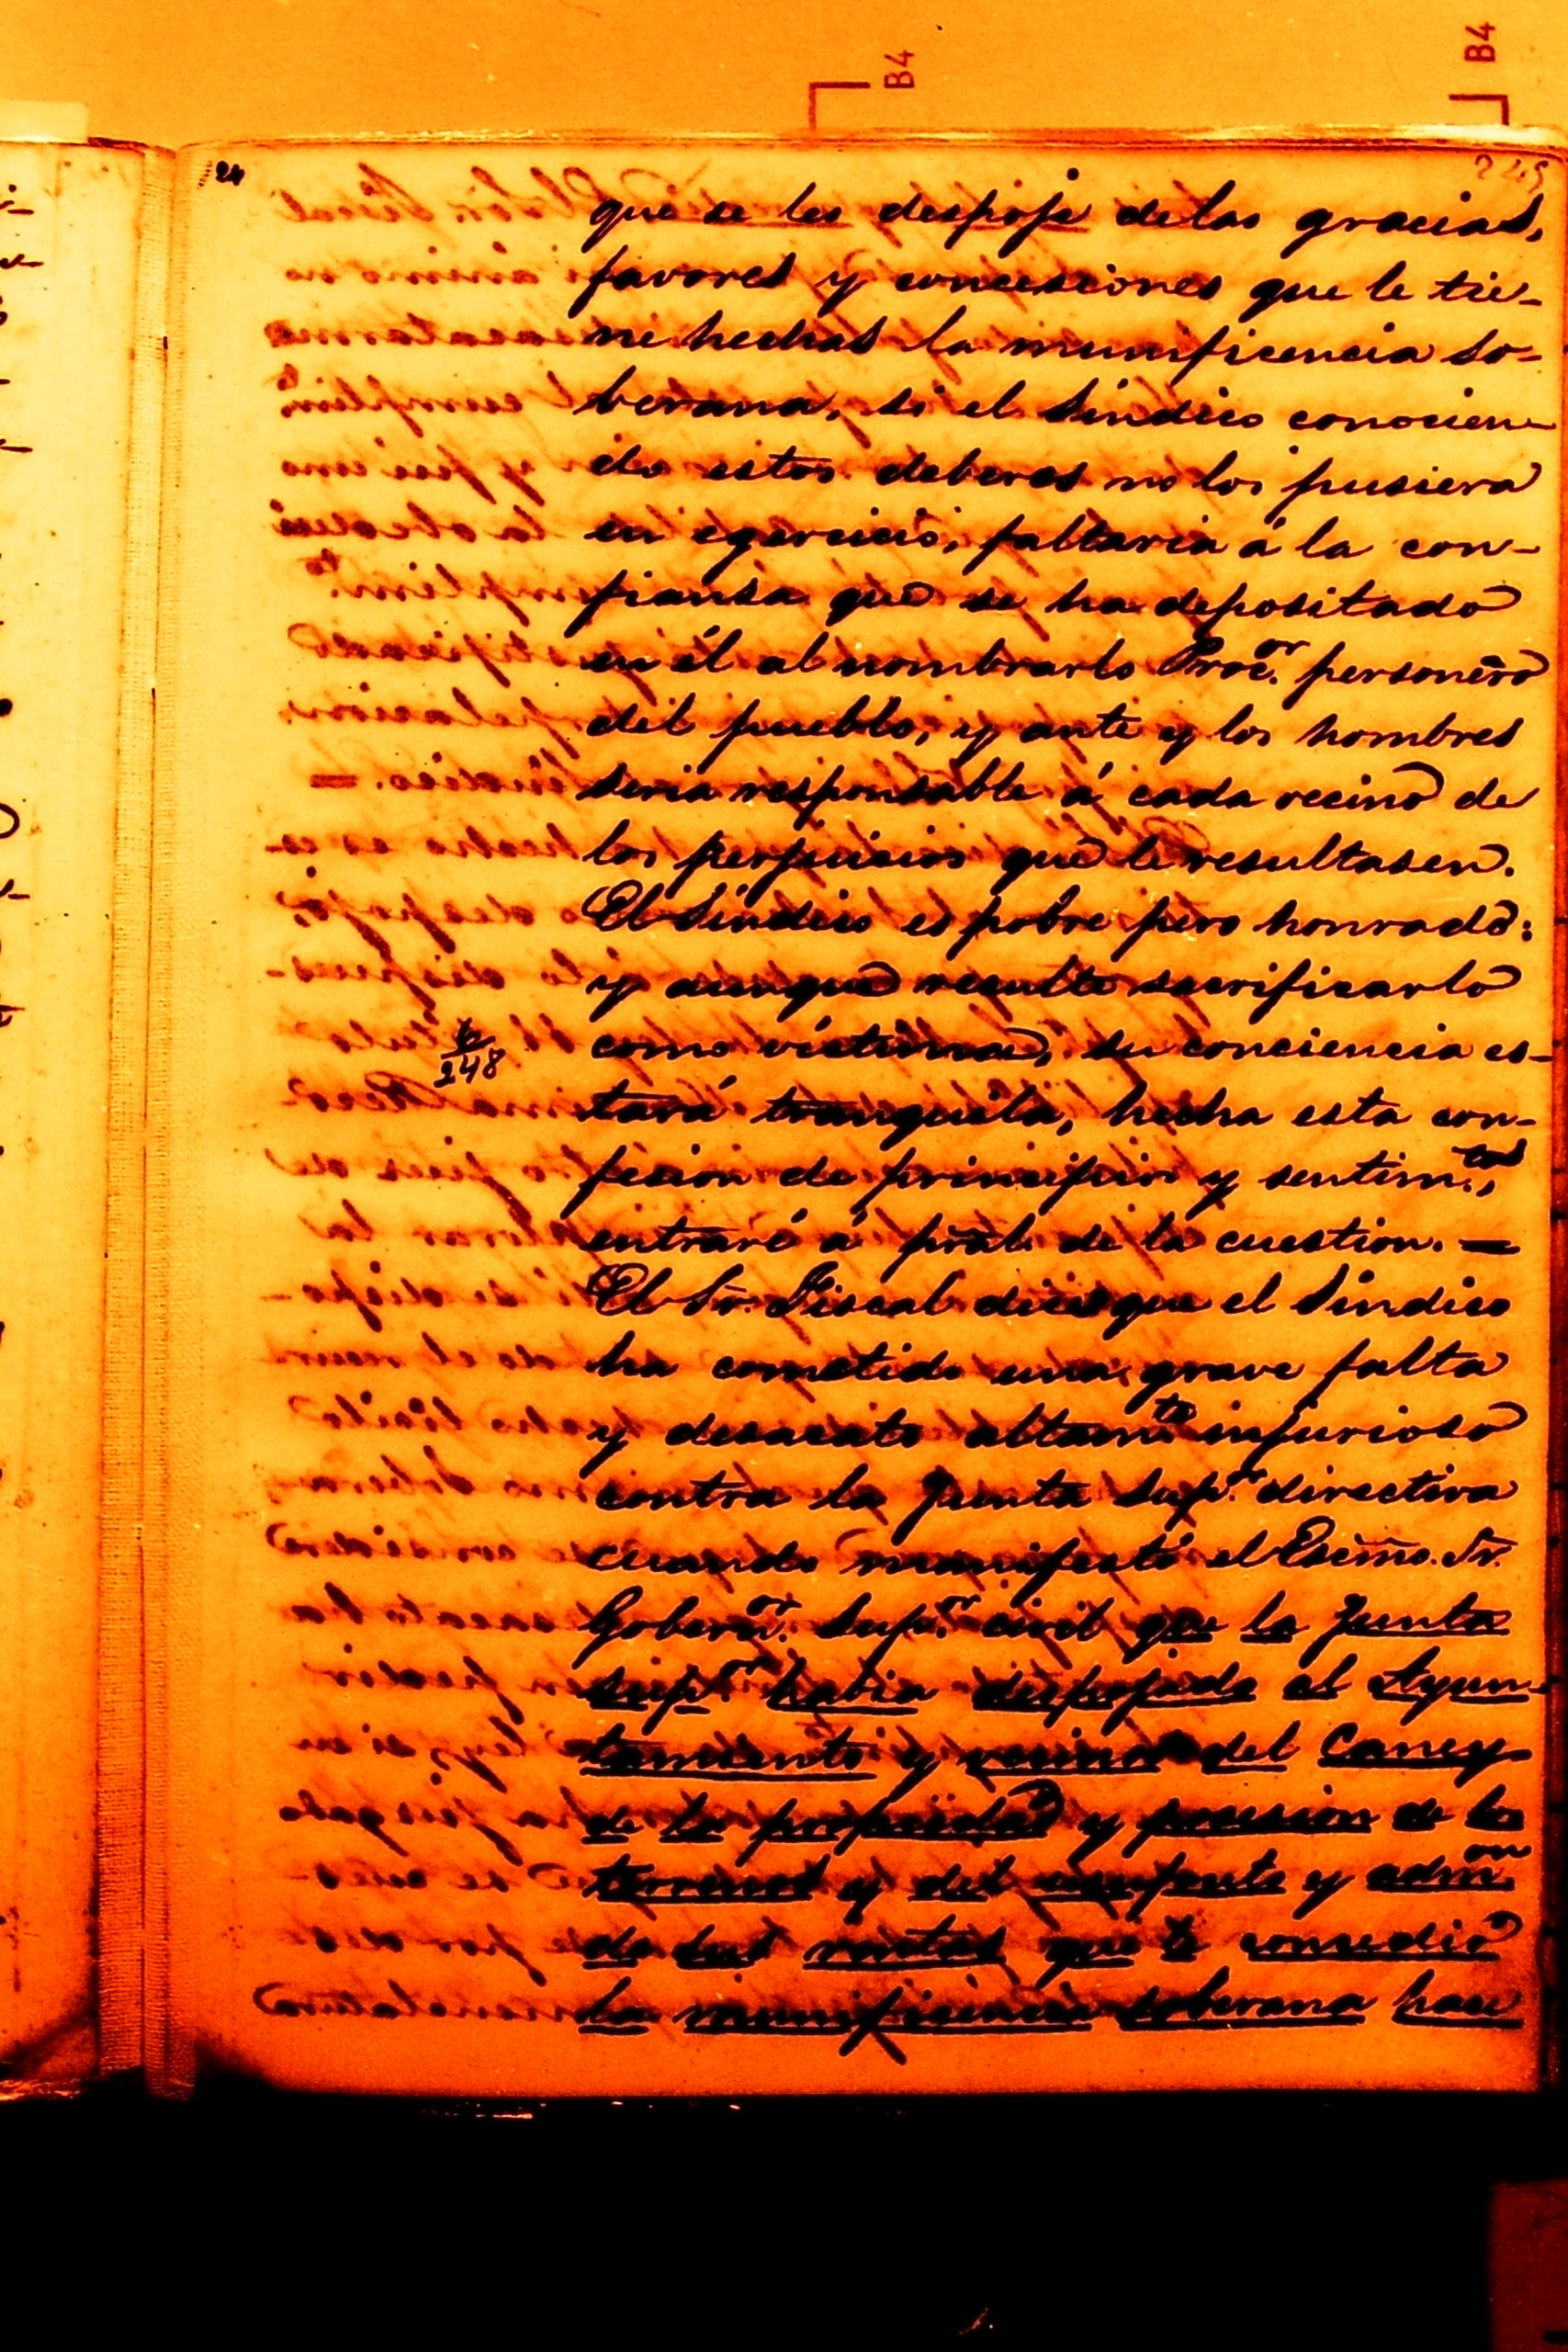 B4
B4
24
que se les despoje de las gracias,
favores y concesiones que le tie-
ne hechas la munificencia so-
berana, si el Síndico conocien-
do estos deberes no los pusiera
en egercicio, faltaria á la con-
fiansa que se ha depositado
en él al nombrarlo Proc.or personero
del pueblo, y ante y los hombres
seria responsable á cada vecino de
los perjuicios que le resultasen.
El Síndico es pobre pero honrado:
y aunque resulte sacrificarlo
como víctima, su conciencia es-
248
tará tranquila, hecha esta con-
fesion de principios y sentim.tos,
entraré á pral. de la cuestion. =
El Sr. Fiscal dice que el Síndico
ha cometido una grave falta
y desacato altam.te injurioso
contra la Junta Sup.or directiva
cuando manifestó el Escmo. Sr.
Gobern.or Sup.or civil que la Junta
sup.or habia despojado al Ayun-
tamiento y vecinos del Caney
de la propiedad y posesion de los
terrenos y del usufructo y adm.on
de sus rentas que le consedió
la munificencia soberana hace